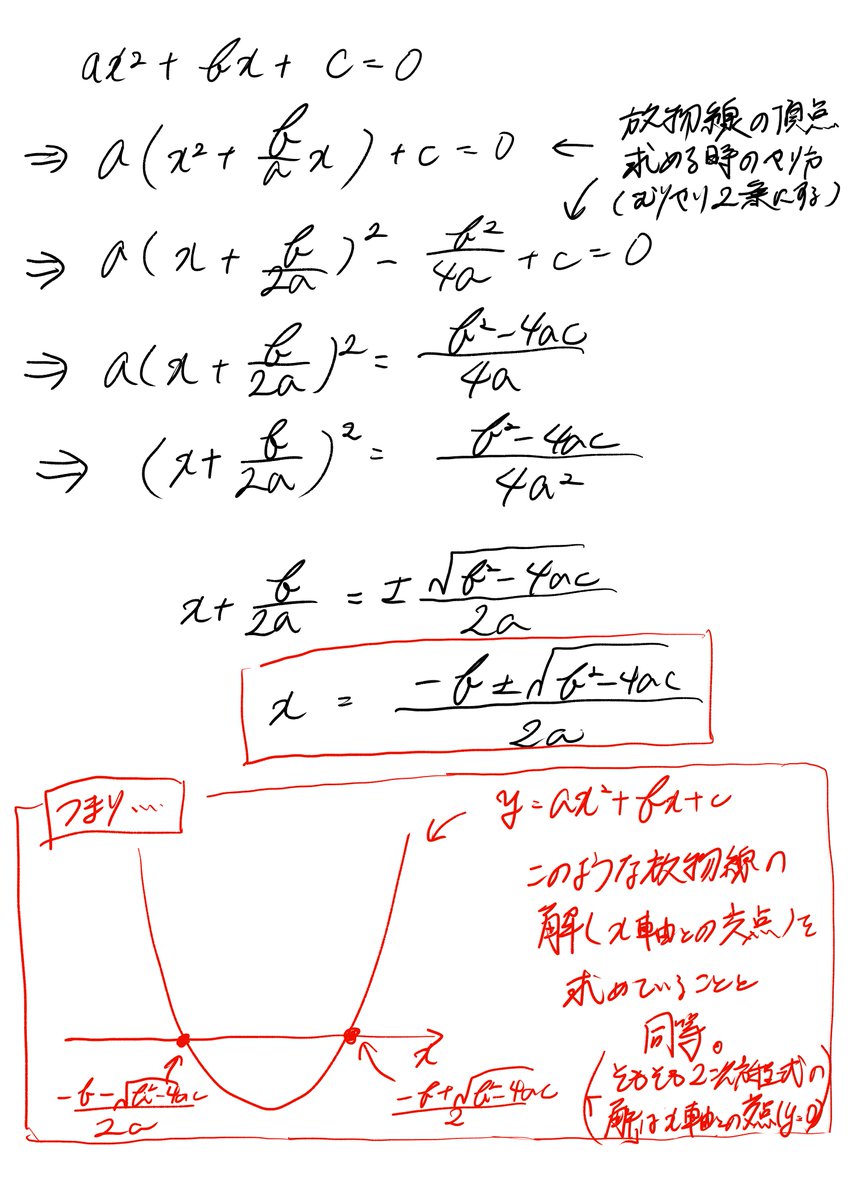 ax² + bx + c = 0
⇒ a(x² + b/a x) + c = 0 ←
放物線の頂点
求める時のやり方
(むりやり2乗にする)
⇒ a(x + b/2a)² - b²/4a + c = 0
⇒ a(x + b/2a)² = b²-4ac/4a
⇒ (x + b/2a)² = b²-4ac/4a²
x + b/2a = ± √b²-4ac/2a
x = -b ± √b²-4ac/2a
つまり….
y = ax² + bx + c
このような放物線の
解(x軸との交点)を
求めていることと
同等。
(そもそも2次方程式の
解はx軸との交点(y=0))
x
-b-√b²-4ac/2a
-b+√b²-4ac/2